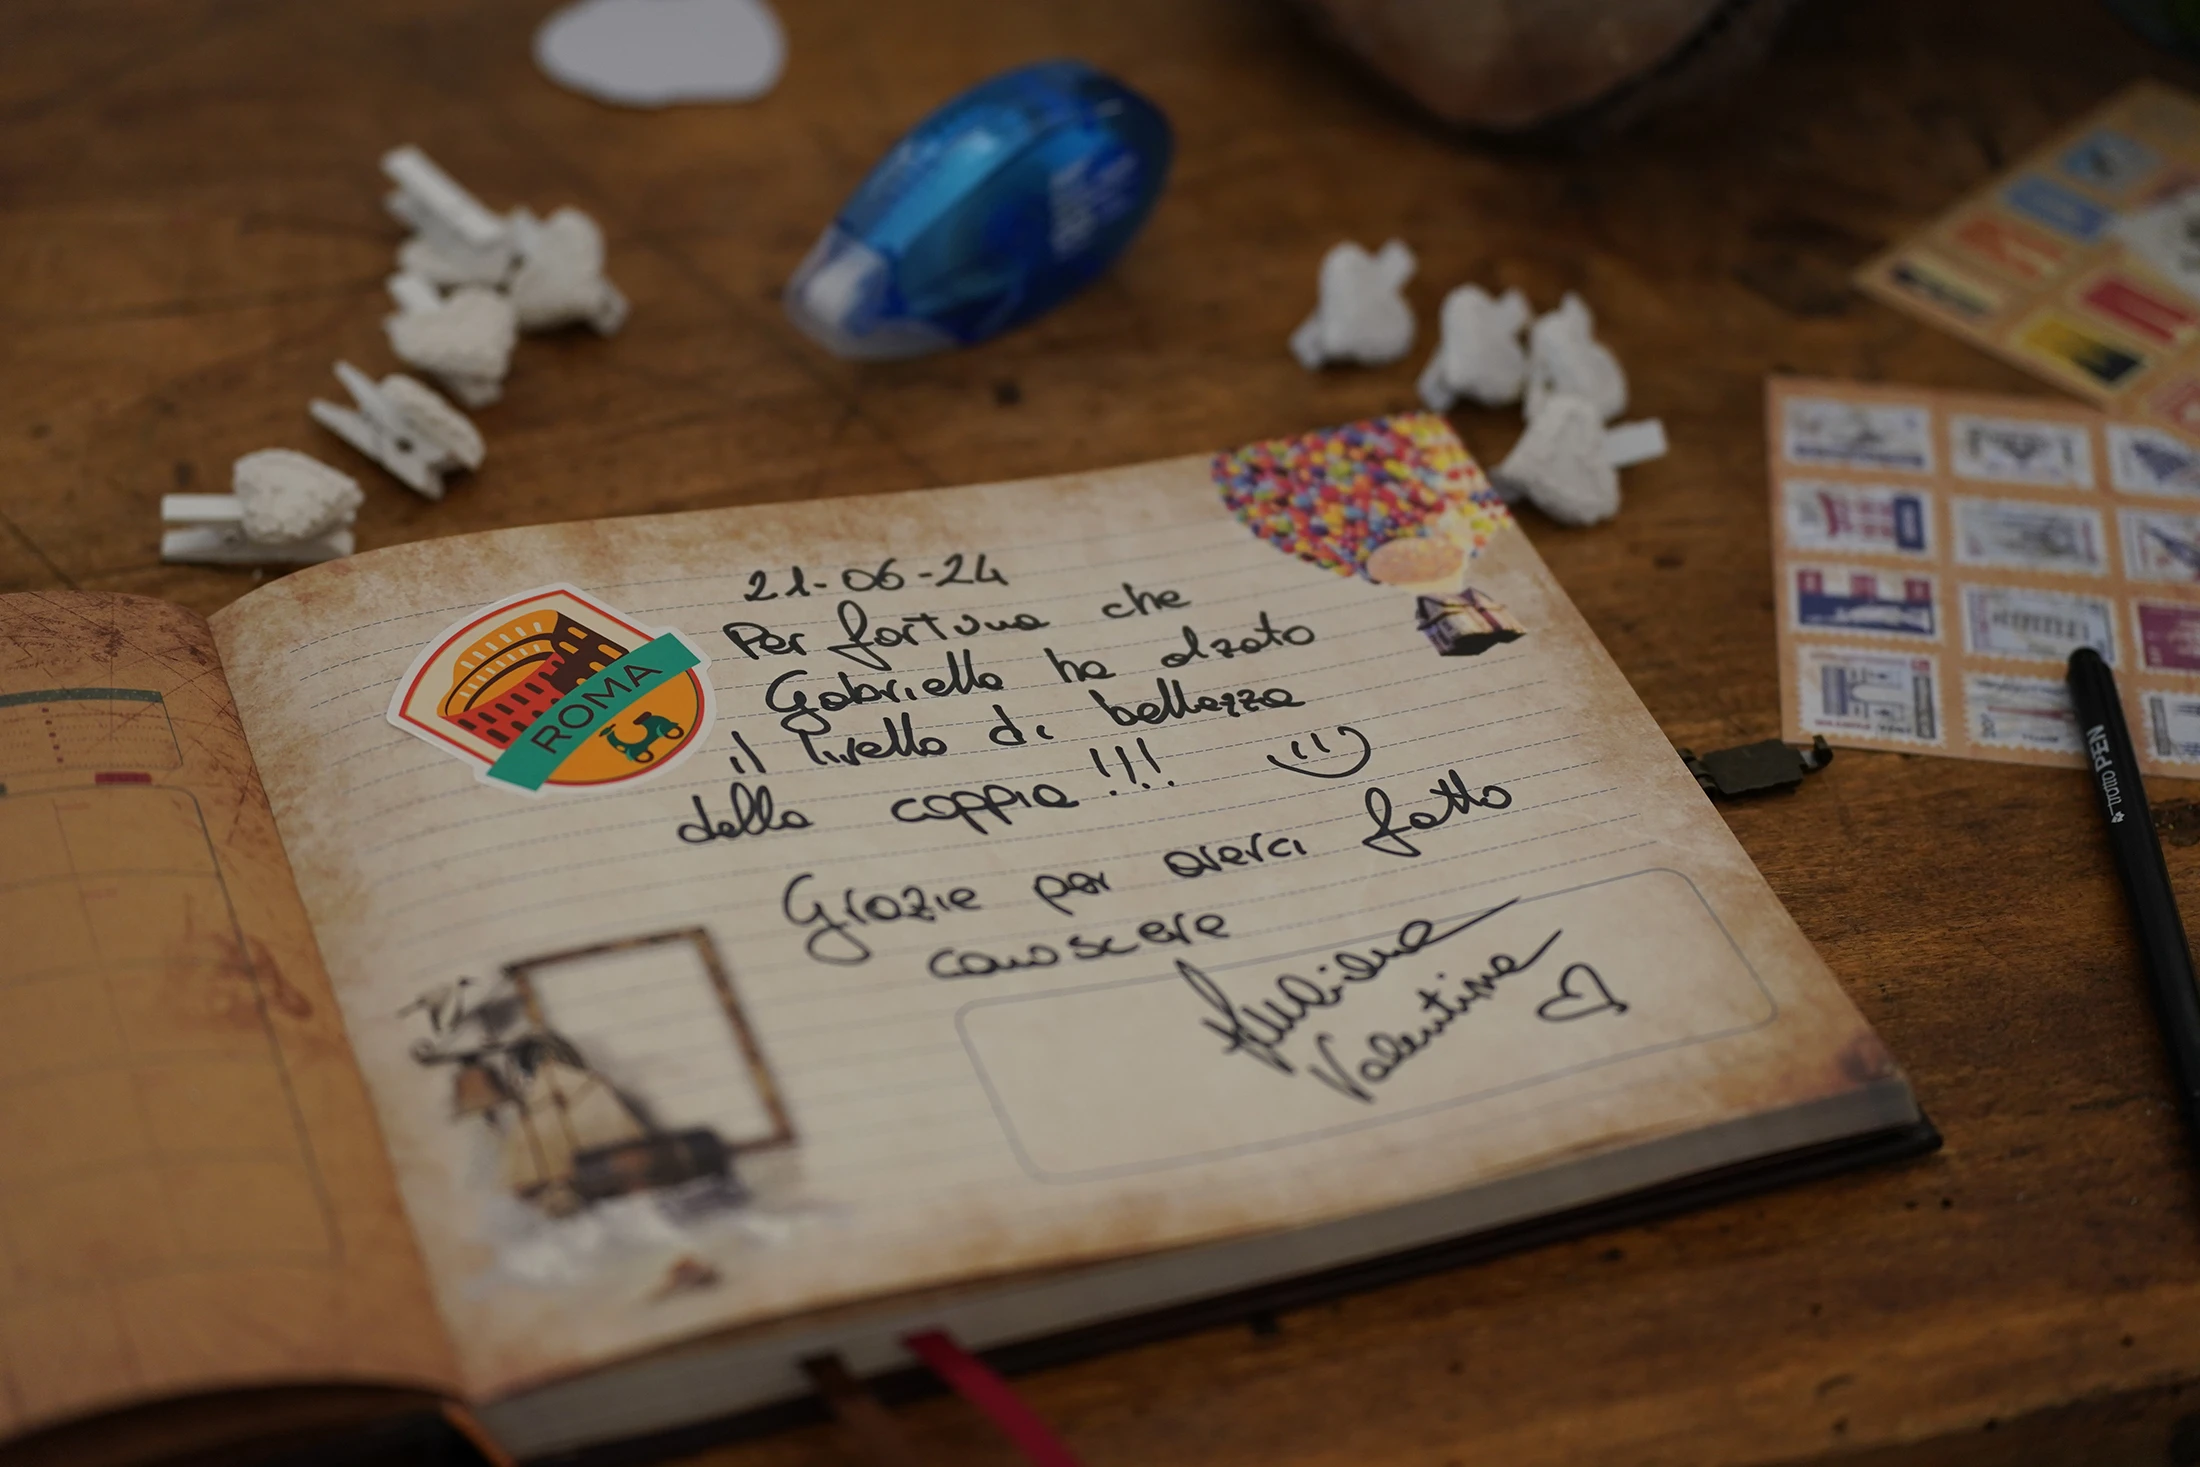 21-06-24
Per fortuna che
Gabriella ha alzato
il livello di bellezza
della coppia !!!
Grazie per averci fatto
conoscere
Valentina
ROMA
PEN